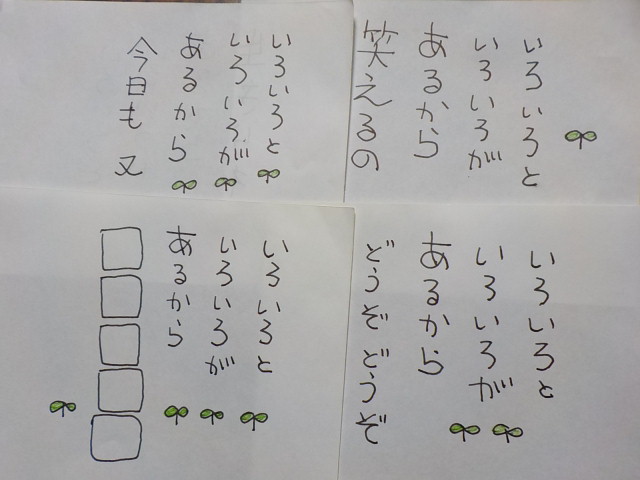 いろいろと
いろいろが
あるから
笑えるの
いろいろと
いろいろが
あるから
今日も又
いろいろと
いろいろが
あるから
どうぞどうぞ
いろいろと
いろいろが
あるから